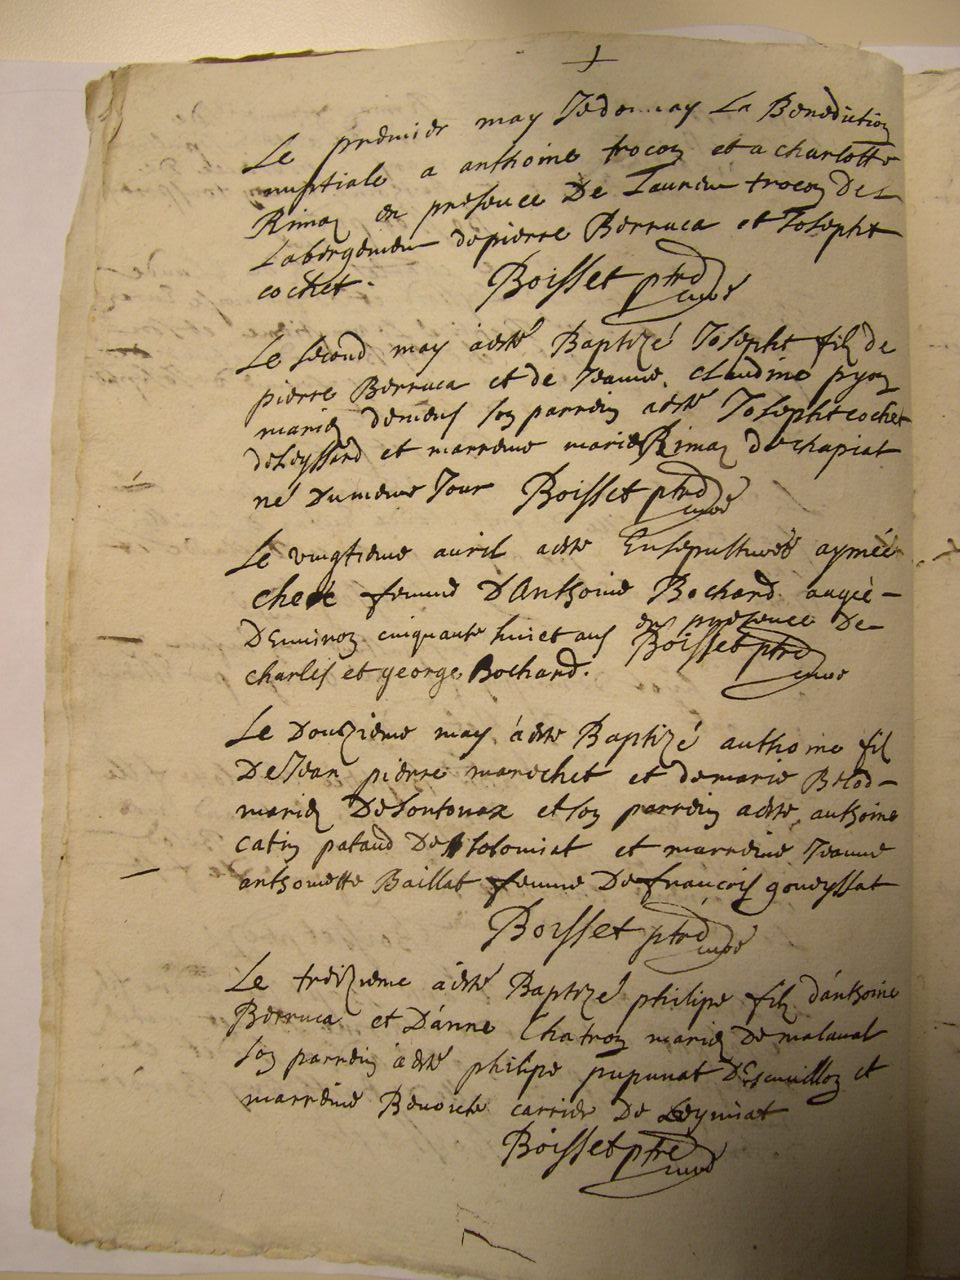 Le premier may Jedonnay La Benediction
nuptiale a anthoine trocon et a charlotte
Rimaz en presence De Laurien trocon De
Labergemen de pierre Berruca et Joseph
cochet.
Boisset ptre curé
Le second may à esté Baptizé Joseph filz de
pierre Berruca et de Jeanne claudine pyon
mariez son parrein a esté Joseph cochet
de Leyssard et marreine marie Rimaz de chapiat
né Du meme Jour Boisset ptre curé
Le vingtieme auril a esté Ensepulturée aymée
femme D'Anthoine Bochard
D'Enuiron cinquante huict ans en presence De
charles et george Bochard. Boisset ptre curé
Le Douzieme may à esté Baptizé anthoine fil
De Jean pierre marechet et de marie
mariez De Sontonax et son parrein a esté anthoine
catin pataud De et marreine Jeanne
anthoinette Baillat femme De francois goueyssat
Boisset ptre curé
Le treizieme à esté Baptizé philipe filz d'anthoine
Berruca et D'anne Chatron mariez De malaual
son parrein à esté philipe pupunat et
marreine Benoiste carrier De Leymiat
Boisset ptre curé